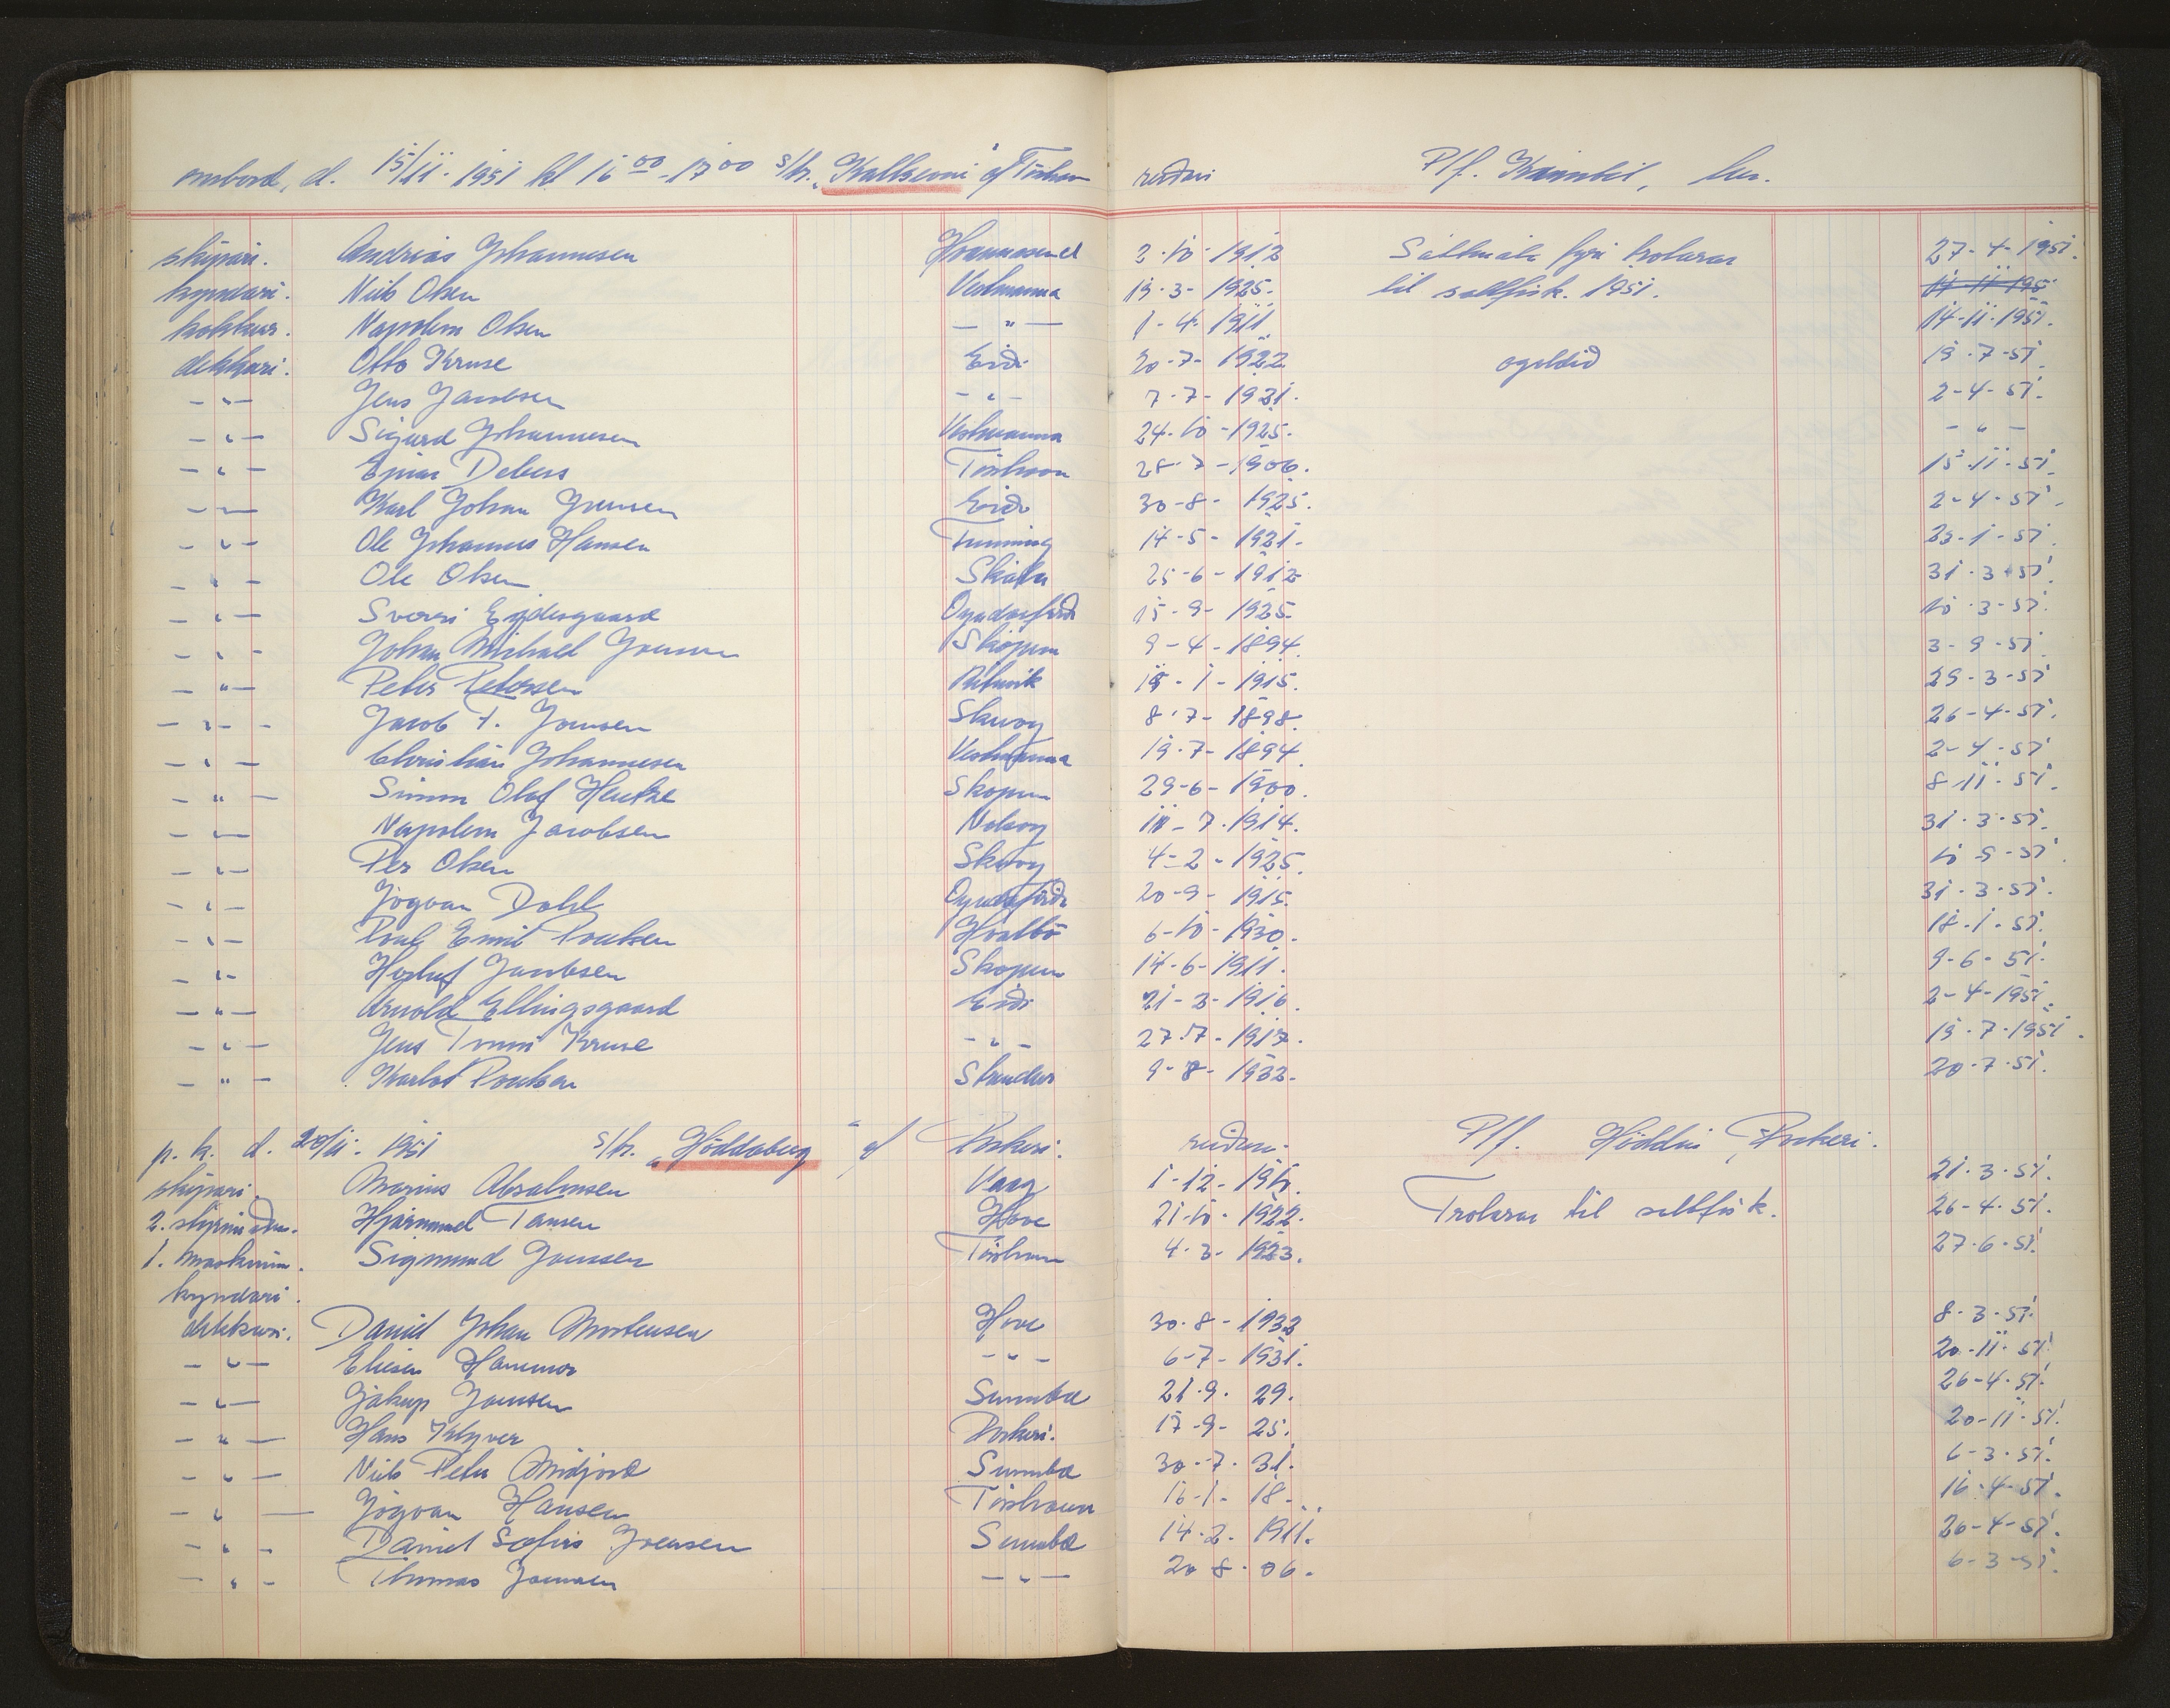 umbord, d. 15/11. 1951 kl 16 00 - 17 00 s/tr. "Kallsevni" af Tórshavn reiðari P/f. Kaimbil, Um.
skipari. Andrias Johannesen Hoannasund 2-10-1912 Sáttmála fyri trolarar 27-4-1951.
kyndari. Niels Olsen Vestmanna 19-3-1925. til saltfisk. 1951. 14-11-195
kokkur. Napoleon Olsen — " — 1-4-1911. 14-11-1951.
dekkari. Otto Kruse Eiði 20-7-1922 ogildið 19-7-51.
— " — Jens Jacobsen - " - 7-7-1921. 2-4-51.
— " — Sigurd Johannesen Vestmanna 24-10-1925. - " -
— " — Ejnar Debess Tórshavn 28-7-1906. 15-11-51.
— " — Karl Johan Joensen Eiði 30-8-1925. 2-4-51.
— " — Ole Johannes Hansen Funning 14-5-1921. 23-1-51.
— " — Ole Olsen Skála 25-6-1912 31-3-51.
— " — Sverri Eydesgaard Oyndarfirði 15-9-1925. 10-3-51.
— " — Johan Michael Joensen Skopun 9-4-1894. 3-9-51.
— " — Peter Petersen 18-1-1915. 29-3-51
— " — Jacob F. Joensen Skuvoy 8-7-1898. 26-4-51.
— " — Christian Johannesen Vestmanna 19-7-1894. 2-4-51
— " — Simon Olaf Hentze Skopun 29-6-1900. 8-11-51.
— " — Napoleon Jacobsen Nolsoy 11-7-1914. 31-3-51.
— " — Per Olsen Skuvoy 4-2-1925. 10-9-51.
— " — Jógvan Dahl Oyndarfirði 20-9-1915. 31-3-51.
— " — Poul Emil Poulsen Hvalbö 6-10-1930. 18-1-51.
— " — Herluf Jacobsen Skopun 14-6-1911. 9-6-51.
— " — Arnold Ellingsgaard Eiði 21-3-1916. 2-4-1951.
— " — Jens Tummi Kruse - " - 27-7-1917. 19-7-1951.
— " — Karlot Poulsen Strendur 9-8-1932. 20-7-51.
p. k. d. 20/11. 1951 s/tr. "Höddaberg" af Porkeri. reiðari P/f. Höddin, Porkeri.
skipari. Marius Absalonsen Vaag 1-12-1910. 21-3-51.
2. stýrimaður. Hjarnmod Tausen Hove 21-10-1922. Trolarar til saltfisk. 26-4-51.
1. maskinm. Sigmund Joensen Tórshavn 4-3-1923. 27-6-51.
kyndari.
dekkari. Daniel Johan Mortensen Hove 30-8-1932 8-3-51.
— " — Eliesar Hammer - " - 6-7-1931. 20-11-51.
— " — Jákup Joensen Sumba 21-9-29. 26-4-51.
— " — Hans Klyver Porkeri. 17-9-25. 20-11-51.
— " — Niels Peter Midjord Sumba 30-7-31. 6-3-51.
— " — Jógvan Hansen Tórshavn 16-1-18. 16-4-51.
— " — Daniel Sofus Joensen Sumba 14-2-1911. 26-4-51.
— " — Thomas Joensen — " — 20-8-06. 6-3-51.